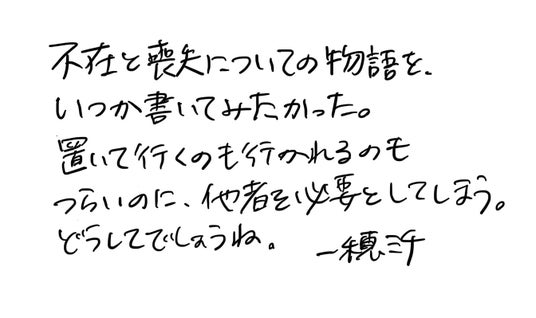 不在と喪失についての物語を、
いつか書いてみたかった。
置いて行くのも行かれるのも
つらいのに、他者を必要としてしまう。
どうしてでしょうね。
一穂ミチ